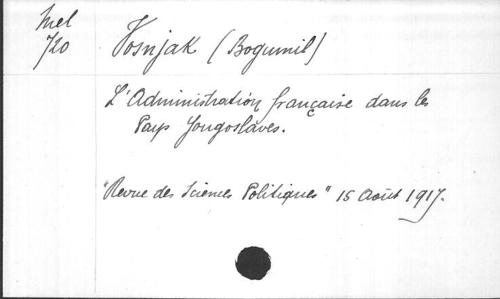 Mel
720
Vosnjak (Bogumil)
L'Administration française dans les
Pays Yougoslaves.
"Revue des Sciences Politiques" 15 Août 1917.